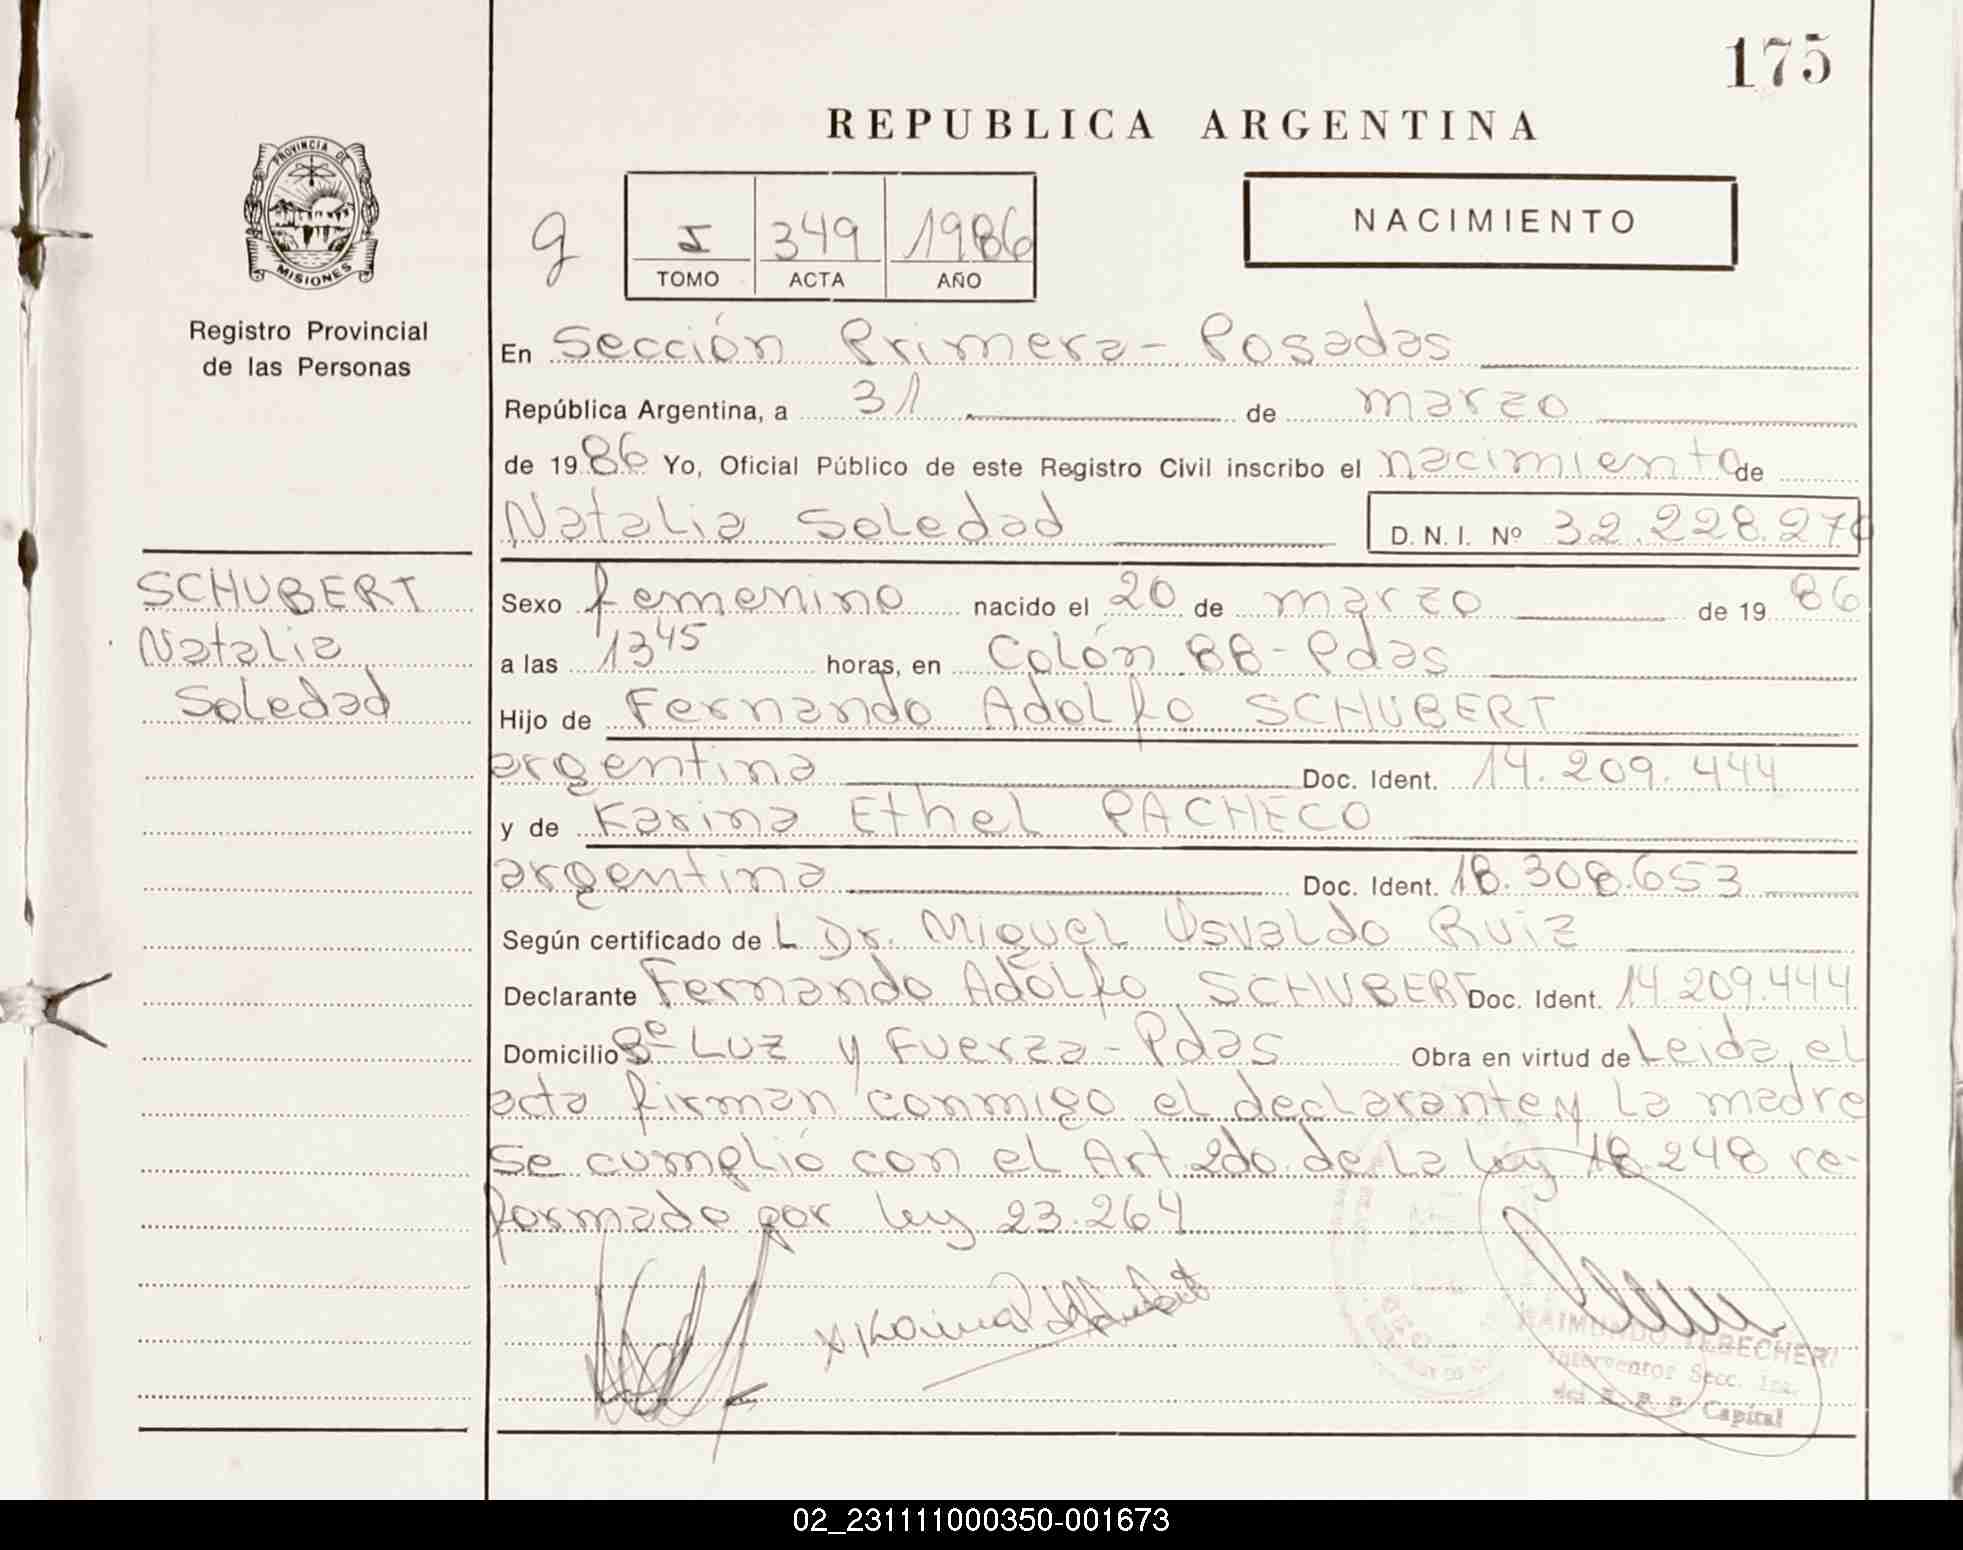 175
REPUBLICA ARGENTINA
PROVINCIA DE
MISIONES
Registro Provincial
de las Personas
g
I 349 1986
TOMO ACTA AÑO
NACIMIENTO
En Sección Primera - Posadas
República Argentina, a 31 de marzo
de 1986 Yo, Oficial Público de este Registro Civil inscribo el nacimiento de
Natalia Soledad D. N. I. Nº 32.228.270
SCHUBERT
Natalia
Soledad
Sexo femenino nacido el 20 de marzo de 19 86
a las 13 45 horas, en Colón 88 - Pdas
Hijo de Fernando Adolfo SCHUBERT
argentina Doc. Ident. 14.209.444
y de Karina Ethel PACHECO
argentina Doc. Ident. 18.308.653
Según certificado de L Dr. Miguel Osvaldo Ruiz
Declarante Fernando Adolfo SCHUBERT Doc. Ident. 14.209.444
Domicilio Bº Luz y Fuerza - Pdas Obra en virtud de Leida el
acta firman conmigo el declarante y la madre
se cumplió con el Art. 2do. de la ley 18.248 re-
formado por ley 23.264
Karina
RAIMUNDO
Interventor Secc. 1ra.
del R. P. P. Capital
02_231111000350-001673